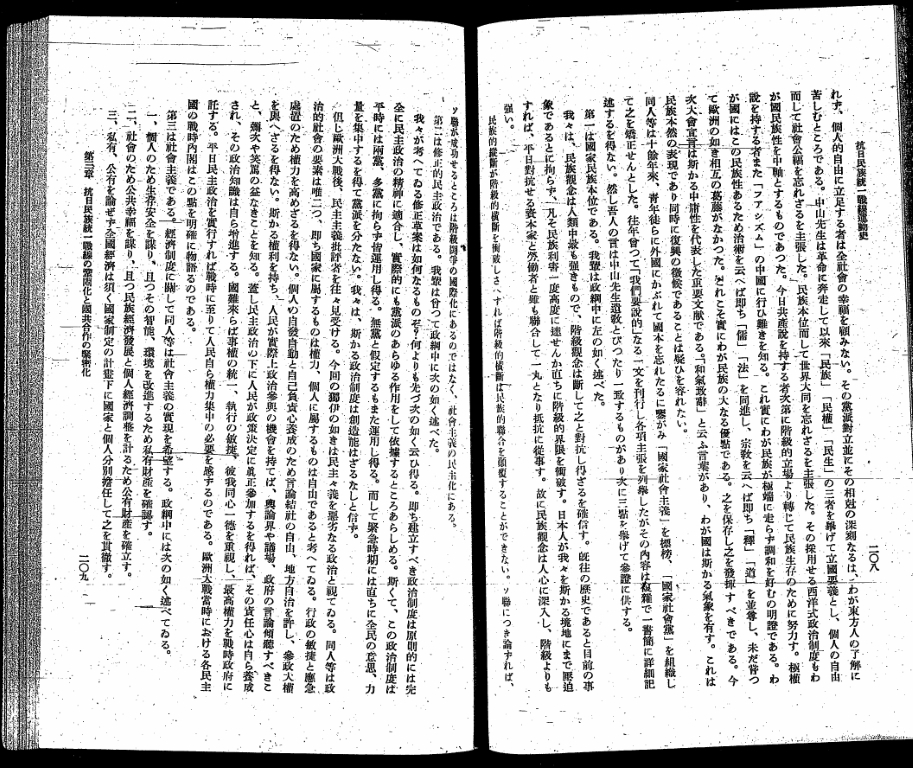 抗日民族統一戰線運動史
二〇八
れず、個人的自由に立足する者は全社會の幸福を顧みない。その黨派對立並にその相剋の深刻なるは、わが東方人の了解に
苦しむところである。中山先生は革命に奔走して以來「民族」「民權」「民生」の三者を擧げて立國要義とし、個人の自由
而して社會公福を忘れざるを主張した。民族本位而して世界大同を忘れざるを主張した。その採用せる西洋式政治制度もわ
が國民族性を中軸とするものであつた。今日共產說を持する者次第に階級的立場より轉じて民族生存のために努力す。極權
說を持する者また「ファシズム」の中國に行ひ難きを知る。これ實にわが民族が極端に走らず調和を好むの明證である。わ
が國にはこの民族性あるため治術を云へば即ち「儒」「法」を同進し、宗敎を云へば即ち「釋」「道」を並尊し、未だ曾つ
て歐洲の如き相互の葛藤がなかつた。これこそ實にわが民族の大なる優點である。之を保存し之を發揮すべきである。今
次大會宣言は斯かる中諧性を代表した重要文獻である。「和氣致祥」と云ふ言葉があり、わが國は斯かる氣象を有す。これは
民族本然の表現であり同時に復興の徵候であることは疑ひを容れない。
同人等は十餘年來、靑年徒らに外國にかぶれて國本を忘れたるに鑒がみ「國家社會主義」を標榜、「國家社會黨」を組織し
て之を矯正せんとした。往年曾つて「我們要說的」なる一文を刊行し各項主張を列擧したがその內容は複雜で一書簡に詳細記
述するを得ない。然し吾人の言は中山先生遺敎とぴつたり一致するものがあり次に三點を擧げて參證に供する。
第一は國家民族本位である。我輩は政綱中に左の如く述べた。
我々は、民族觀念は人類中最も强きもので、階級觀念は斷じて之と對抗し得ざるを確信す。旣往の歷史であると目前の事
象であるとに拘らず、凡そ民族利害一度高度に達せんか直ちに階級的界限を衝破す。日本人が我々を斯かる境地にまで壓迫
すれば、平日對抗せる資本家と勞働者と雖も聯合して一丸となり抵抗に從事す。故に民族觀念は人心に深入し、階級よりも
强い。
民族的橫斷が階級的橫斷を衝破しさへすれば階級的橫斷は民族的聯合を顚覆することができない。ソ聯につき論ずれば、
ソ聯が成功せるところは階級鬪爭の國際化にあるのではなく、社會主義の民主化にある。
第二は修正的民主政治である。我輩は曾つて政綱中に次の如く述べた。
我々が考へてゐる修正草案は如何なるものぞ。何よりも先づ次の如く云ひ得る。即ち建立すべき政治制度は原則的には完
全に民主政治の精神に適合し、實際的にも黨派のあらゆる作用をして依據するところあらしめる。斯くて、この政治制度は
平時には兩黨、多黨に拘らず皆運用し得る。無黨と假定するもまた運用し得る。而して緊急時期には直ちに全民の意思、力
量を集中するを得て、黨派を分たない。我々は、斯かる政治制度は創造能はざるなしと信ず。
但し歐洲大戰後、民主主義批評者を往々見受ける。今回の獨伊の如きは民主々義を惡劣なる政治と觀てゐる。同人等は政
治的社會の要素は唯二つ、即ち國家に屬するものは權力、個人に屬するものは自由であると考へてゐる。行政の敏捷と應急
處置のため權力を高めざるを得ない。個人の自發自動と自己負責の養成のため言論結社の自由、地方自治を許し、參政大權
を與へざるを得ない。斯かる權利を持ち、人民が實際上政治參與の機會を持てば、輿論界や議場、政府の言論傾聽すべきこ
と、嘲次や笑罵の益なきことを知る。蓋し民主政治の下に人民が政策決定に眞正參加するを得れば、その責任心は自ら養成
され、その政治知識は自ら增進する。國難來らば事權の統一、執行の敏捷、彼我同心一德を重視し、最高權力を戰時政府に
託する。平日民主政治を實行すれば戰時に至りて人民自ら權力集中の必要を感ずるのである。歐洲大戰當時における各民主
國の戰時內閣はこの點を明確に物語るものである。
第三は社會主義である。經濟制度に關して同人等は社會主義の實現を希望する。政綱中には次の如く述べてゐる。
一、個人のため生存安全を謀り、且つその智能、環境を改進するため私有財產を確認す。
二、社會のため公共幸福を謀り、且つ民族經濟發展と個人經濟調整を計るため公有財產を確立す。
三、私有、公有を論ぜず全國經濟は須く國家制定の計畫下に國家と個人分別擔任して之を貫徹す。
第三章　抗日民族統一戰線の鞏固化と國共合作の緊密化
二〇九